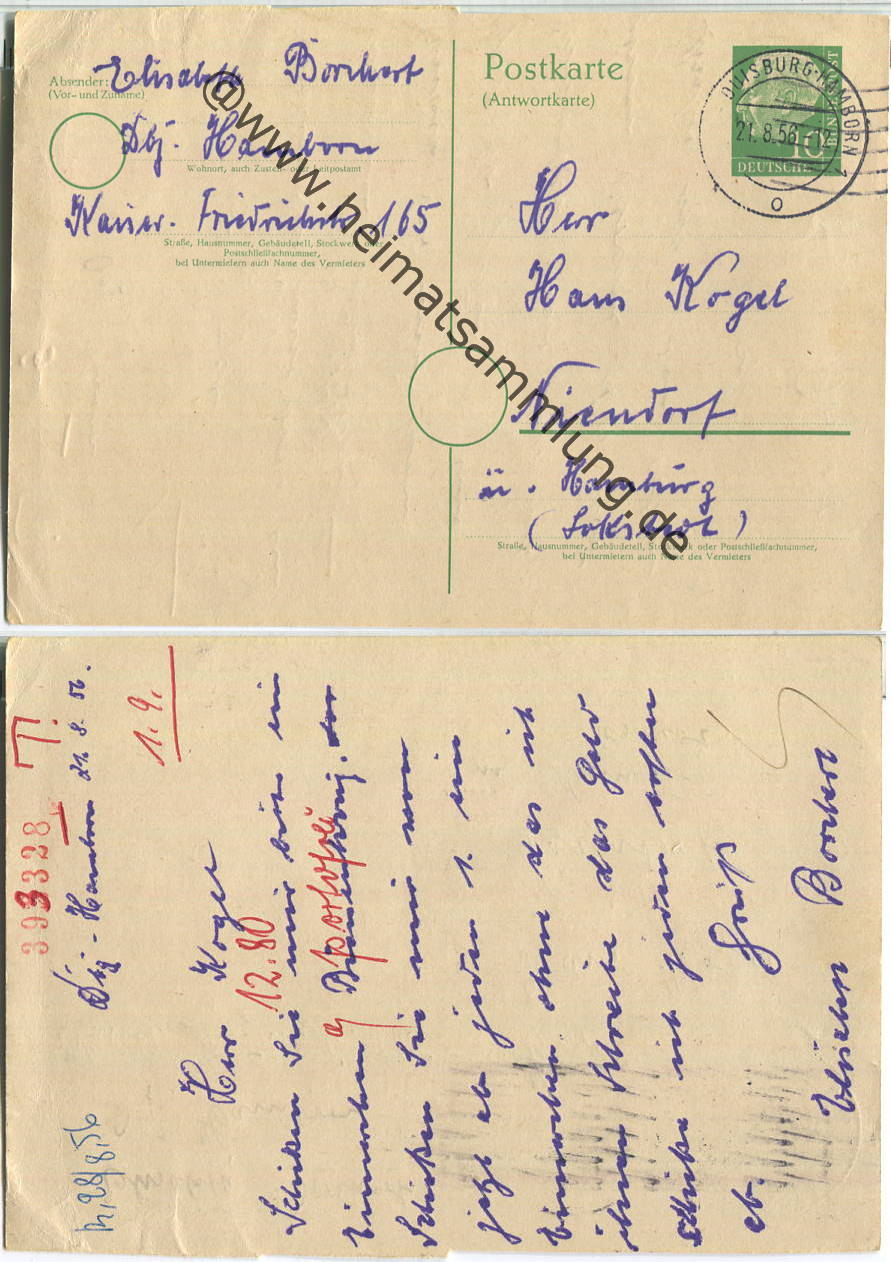 Absender:
(Vor- und Zuname)
Elisabeth Borchert
Dbg. Hamborn
Wohnort, auch Zustell- oder Leitpostamt
Kaiser-Friedrichstr 165
Straße, Hausnummer, Gebäudeteil, Stockwerk oder
Postschließfachnummer,
bei Untermietern auch Name des Vermieters
Postkarte
(Antwortkarte)
DEUTSCHE BUNDESPOST
10
DUISBURG-HAMBORN 1
21.8.56.-12
o
Herr
Hans Kogel
Niendorf
ü. Hamburg
(Lokstedt)
Straße, Hausnummer, Gebäudeteil, Stockwerk oder Postschließfachnummer,
bei Untermietern auch Name des Vermieters
@www.heimatsammlung.de
393328
Dbg-Hamborn 21. 8. 56.
1.9.
28/8.56
Herr Kogel
12.80
Schicken Sie mir bitte ein
Schicken Sie mir von
jetzt ab jeden 1. ein
ohne das ich
Schreibe das Geld
schicke ich jeden ersten
ab.
Gruß
Elisabeth Borchert